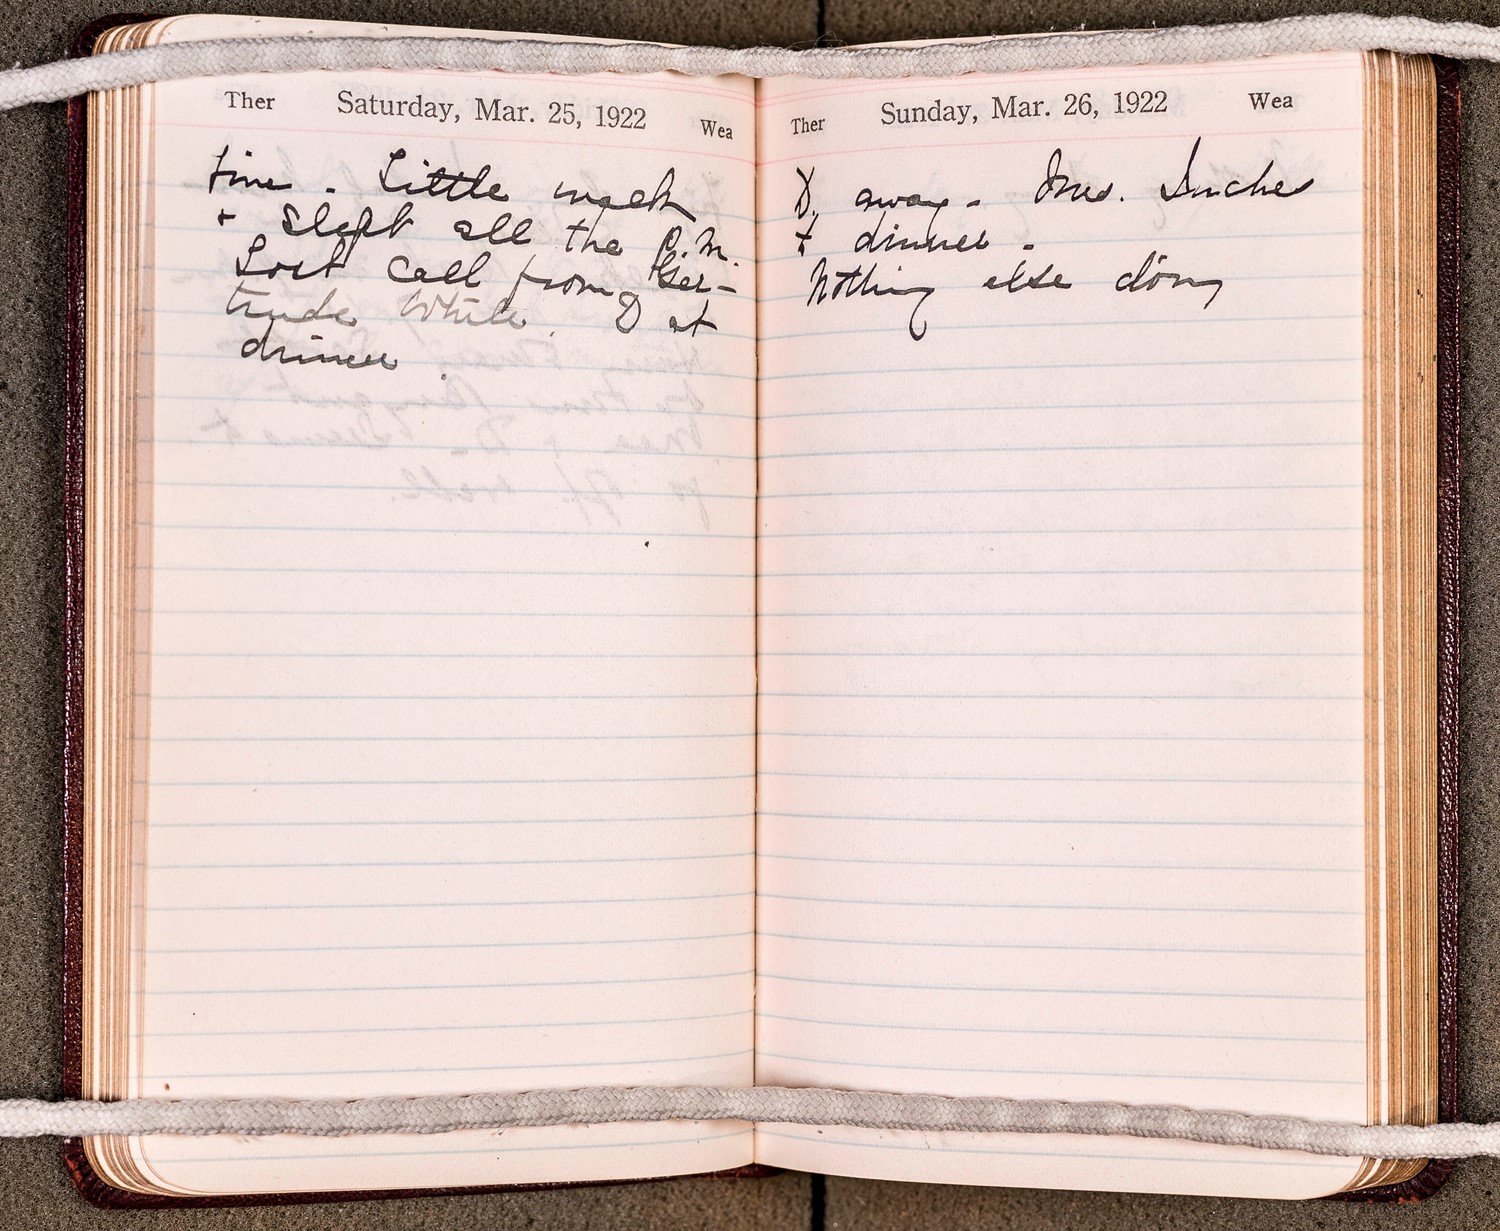 Ther Saturday, Mar. 25, 1922 Wea
Fine - Little walk
+ slept all the P.M.
Lost call from Ger-
trude White. D at
dinner.
Ther Sunday, Mar. 26, 1922 Wea
D. away - Mrs.
+ dinner -
Nothing else doing